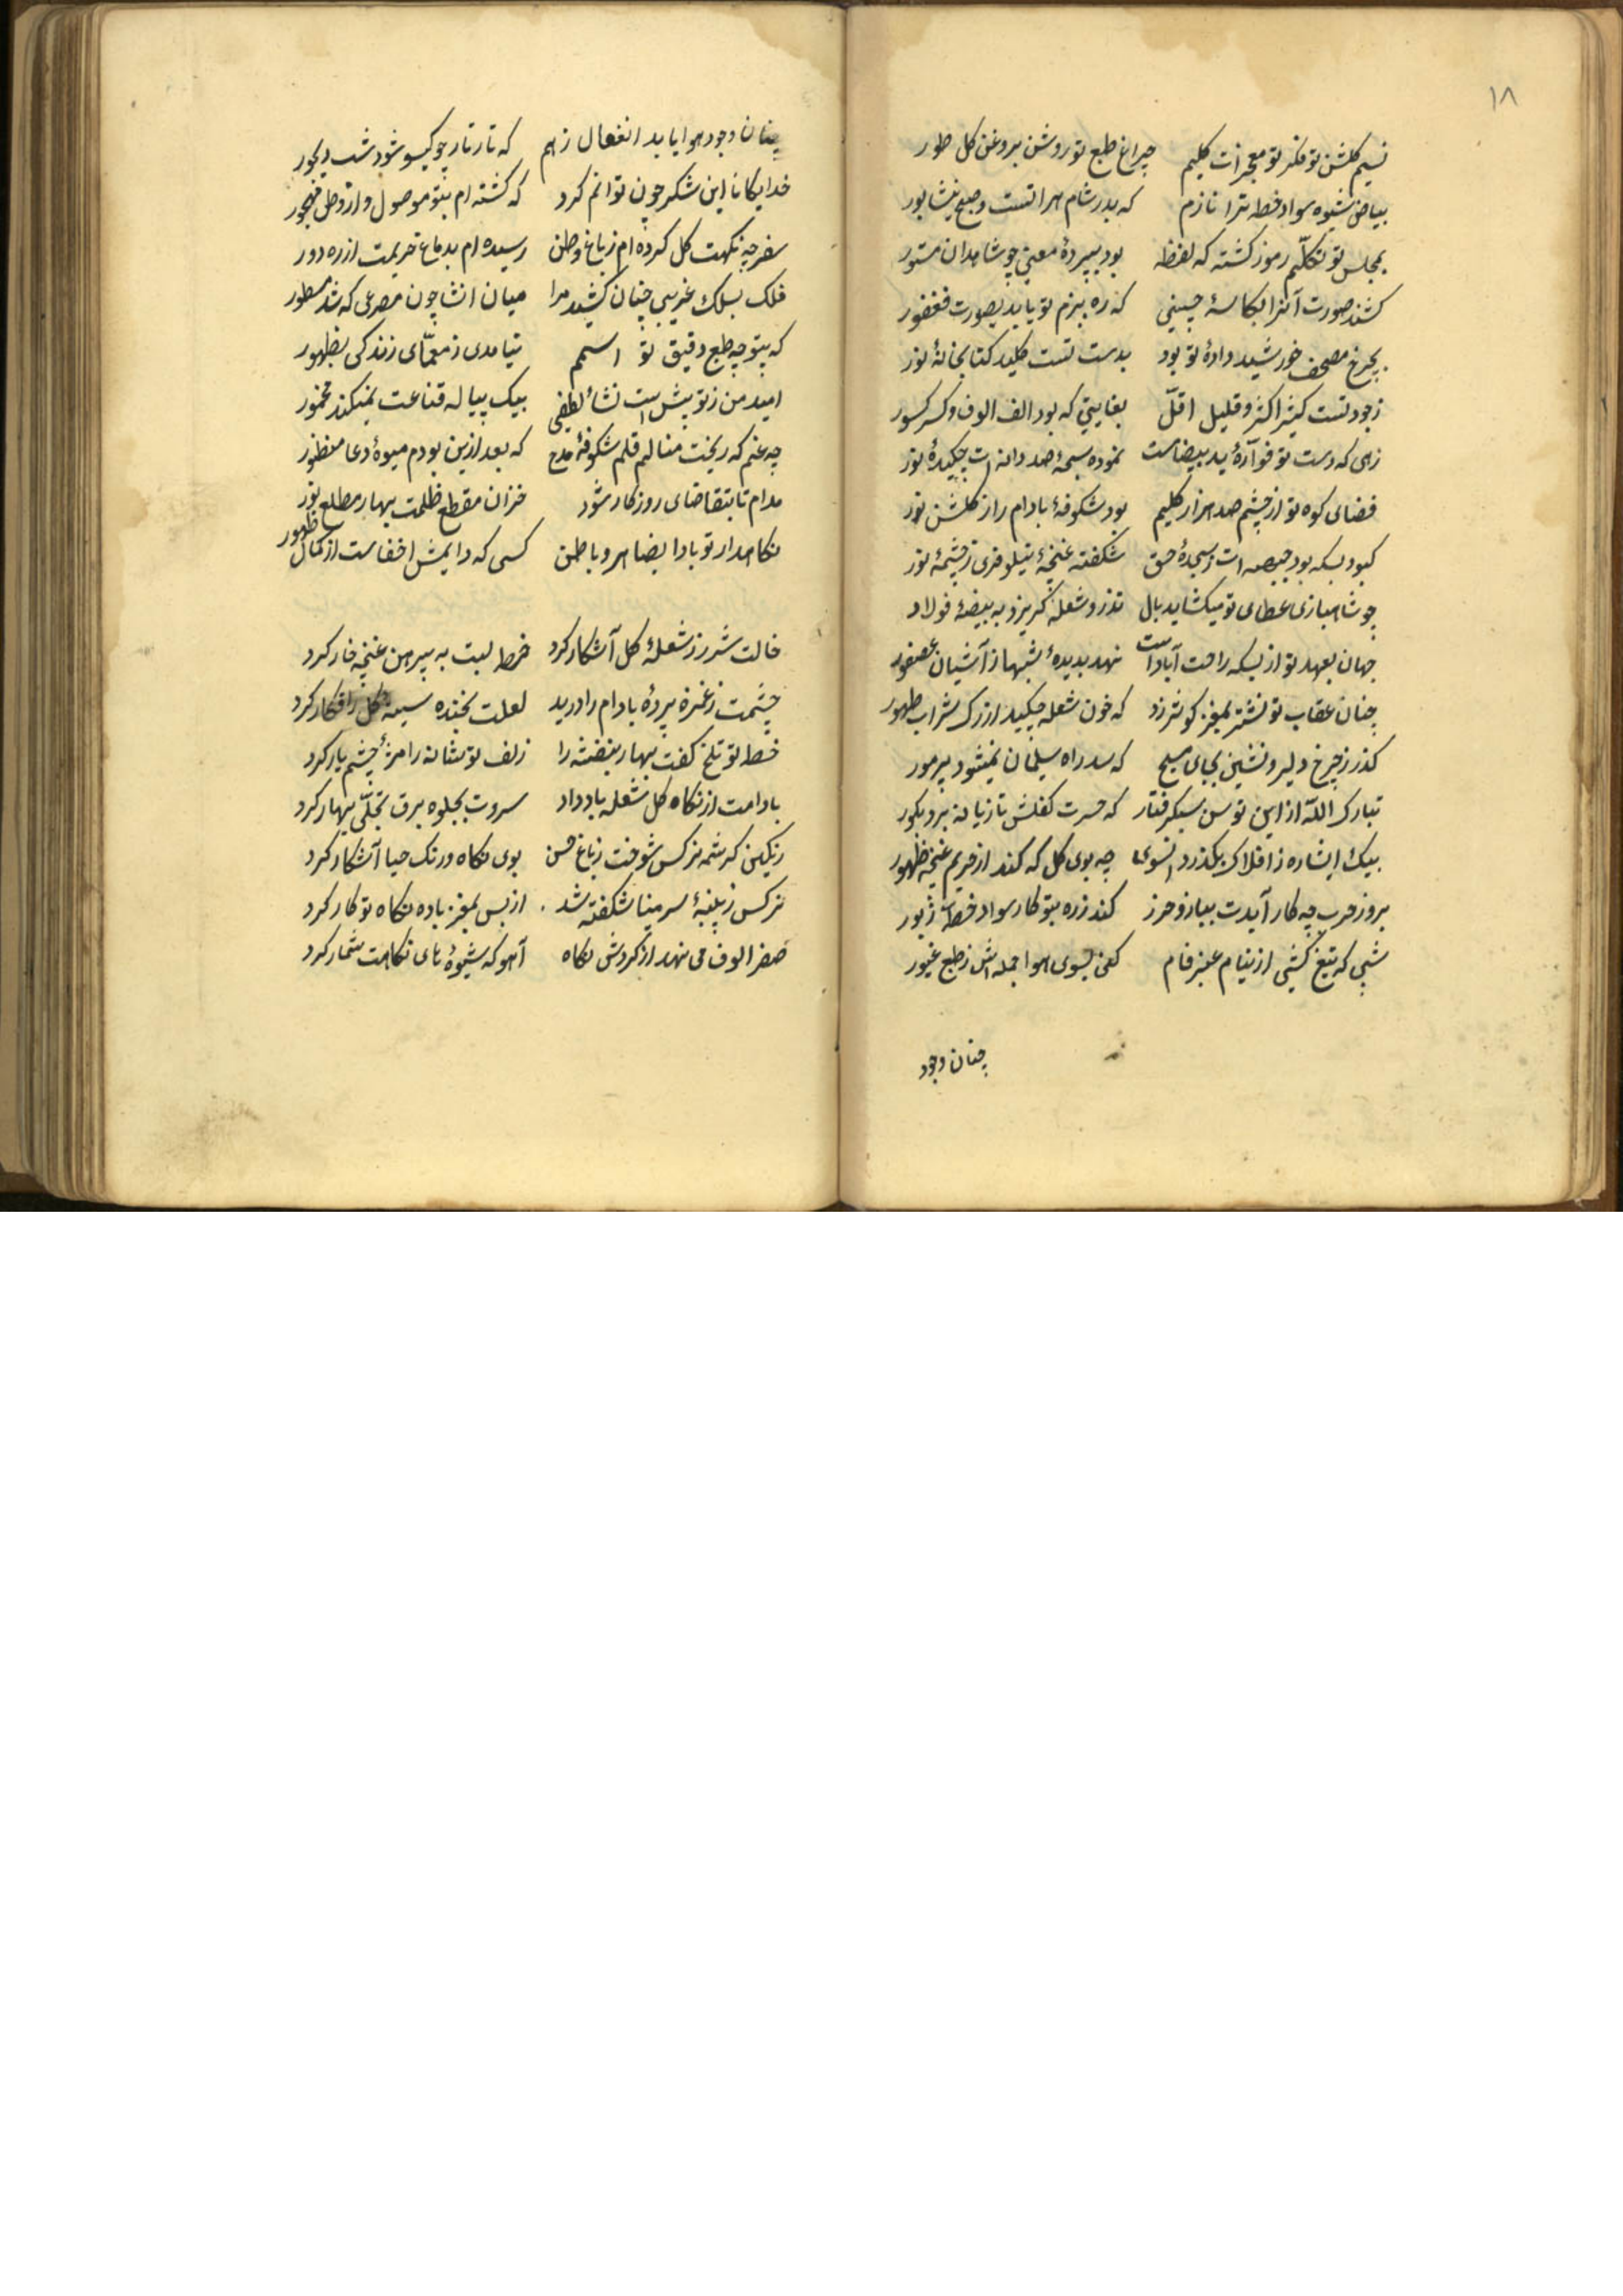 ۱۸
نسیم گلشن تو فکر تو معجزات کلیم چراغ طبع تو روشن بروغن کل طور
بیاض شیوه سواد خط ترا نازم که بدر شام هراتست و صبح نیشابور
بمجلس تو تکلّم رموز کشته که لفظ بود بپردهٔ معنی چو شاهدان مستور
کشند صورت آنرا بکاسهٔ چینی که ره ببزم تو یابد بصورت فغفور
بچرخ مصحف خورشید دادهٔ تو بود بدست تست کلید کتابخانهٔ نور
ز جود تست کثیر اکثر و قلیل اقلّ بغایتی که بود الف الوف و کسر کسور
زهی که دست تو فوّارهٔ ید بیضاست نموده سبحهٔ صد دانه ات چکیدهٔ نور
فضای کوه تو از چشم صد هزار کلیم بود شکوفهٔ بادام راز کلشن نور
کبود بسکه بود جبهه ات ز سجدهٔ حق شکفته غنچهٔ نیلوفری ز چشمهٔ نور
چو شاهبازی عطای تو میکشاید بال تذرو شعله کریزد به بیضهٔ فولاد
جهان بعهد تو از بسکه راحت آباد است نهد بدیدهٔ شهباز آشیان عصفور
چنان عقاب تو نشتر بمغز کوثر زد که خون شعله چکید از رک شراب طهور
کذر ز چرخ دلیر و نشین بجای مسیح که سد راه سلیمان نمیشود پر مور
تبارک اللّه از این توسن سبکرفتار که حسرت کفلش تازیانه برد بکور
بیک اشاره ز افلاک بکذرد انسوی چه بوی کل که کند از حریم غنچه ظهور
بروز حرب چه کار آیدت بیازو حرز کند زره بتو کار سواد خط زبور
شبی که تیغ کشی از نیام عنبر فام کنی بسوی هوا حمله اش ز طبع غیور
چنان وجود
چنان وجود هوا یابد انفعال ز هم که تار تار چو کیسو شود شب دیجور
خدایکانا این شکر چون توانم کرد که کشته ام بتو موصول و از وطن مهجور
سفر چه نکهت کل کرده ام ز باغ وطن رسیده ام بدماغ حریمت از ره دور
فلک بسلک غریبی چنان کشید مرا میان انشا چون مصرعی که شد مسطور
که بتوجه طبع دقیق تو اسمم نیامدی ز معمّای زندکی بظهور
امید من ز تو بیش است نشأ لطفی بیک پیاله قناعت نمیکند مخمور
چه غم که ریخت منالم قلم شکوفهٔ مدح که بعد ازین بودم میوهٔ دعا منظور
مدام تا بتقاضای روزکار شود خزان مقطع ظلمت بهار مطلع نور
نکاهدار تو بادا بضاهر و باطن کسی که دایمش اخفاست از کمال ظهور
خالت شرر ز شعلهٔ کل آشکار کرد خط لبت به پیرهن غنچه خار کرد
چشمت ز غمزه پردهٔ بادام را درید لعلت بخنده سینهٔ کل را فکار کرد
خط تو تلخ کفت بهار بنفشه را زلف تو شانه را مژهٔ چشم یار کرد
بادامت از نکاه کل شعله باد داد سروت بجلوه برق تجلّی بهار کرد
رنکین کرشمه نرکس شوخت ز باغ حسن بوی نکاه و رنک حیا آشکار کرد
نرکس ز پنبهٔ سر مینا شکفته شد از بس بمغز باده نکاه تو کار کرد
صفر الوف می نهد از کردش نکاه آهو که شیوه های نکاهت شمار کرد